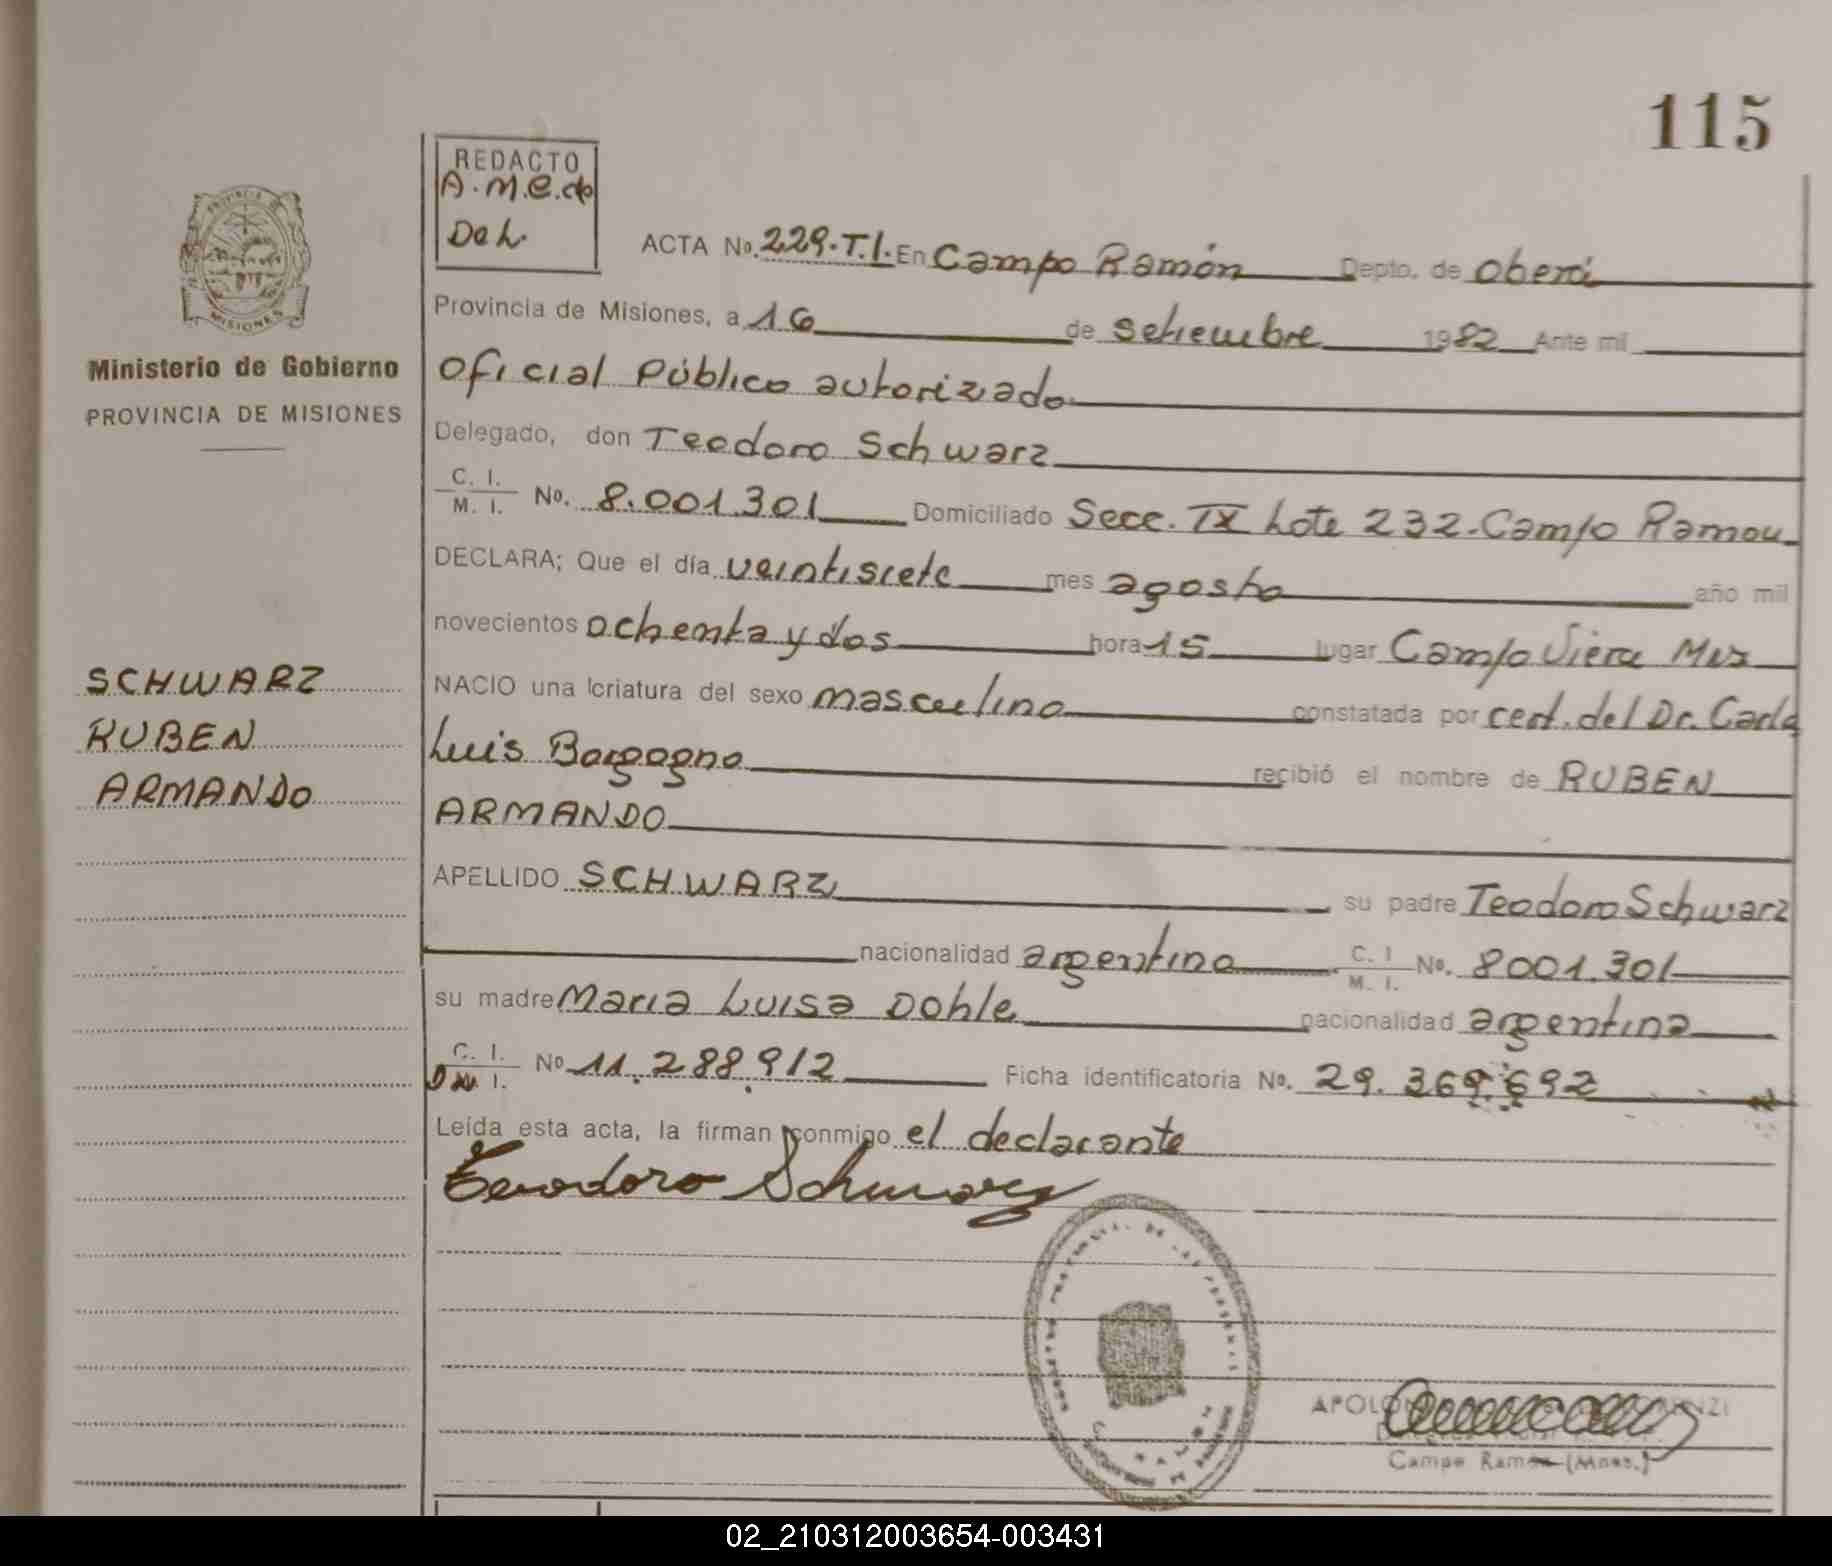 115
REDACTO
A.M.C.de
De L.
ACTA No. 229.T.I. En Campo Ramón Depto. de Oberá
Provincia de Misiones, a 16 de setiembre 1982 Ante mi
Oficial Público autorizado
Delegado, don Teodoro Schwarz
C. I.
M. I. No. 8.001.301 Domiciliado Secc. IX Lote 232-Campo Ramon
DECLARA; Que el día veintisiete mes agosto año mil
novecientos ochenta y dos hora 15 lugar Campo Viera Mns
NACIO una criatura del sexo masculino constatada por cert. del Dr. Carlos
Luis Borgogno recibió el nombre de RUBEN
ARMANDO
APELLIDO SCHWARZ su padre Teodoro Schwarz
nacionalidad argentino C. I
M. I. No. 8001.301
su madre Maria Luisa Dohle nacionalidad argentina
C. I.
DNI. No 11.288.912 Ficha identificatoria No. 29.369.692
Leída esta acta, la firman conmigo el declarante
Teodoro Schwarz
PROVINCIA DE
MISIONES
Ministerio de Gobierno
PROVINCIA DE MISIONES
SCHWARZ
RUBEN
ARMANDO
Campo Ramón (Mnes.)
02_210312003654-003431